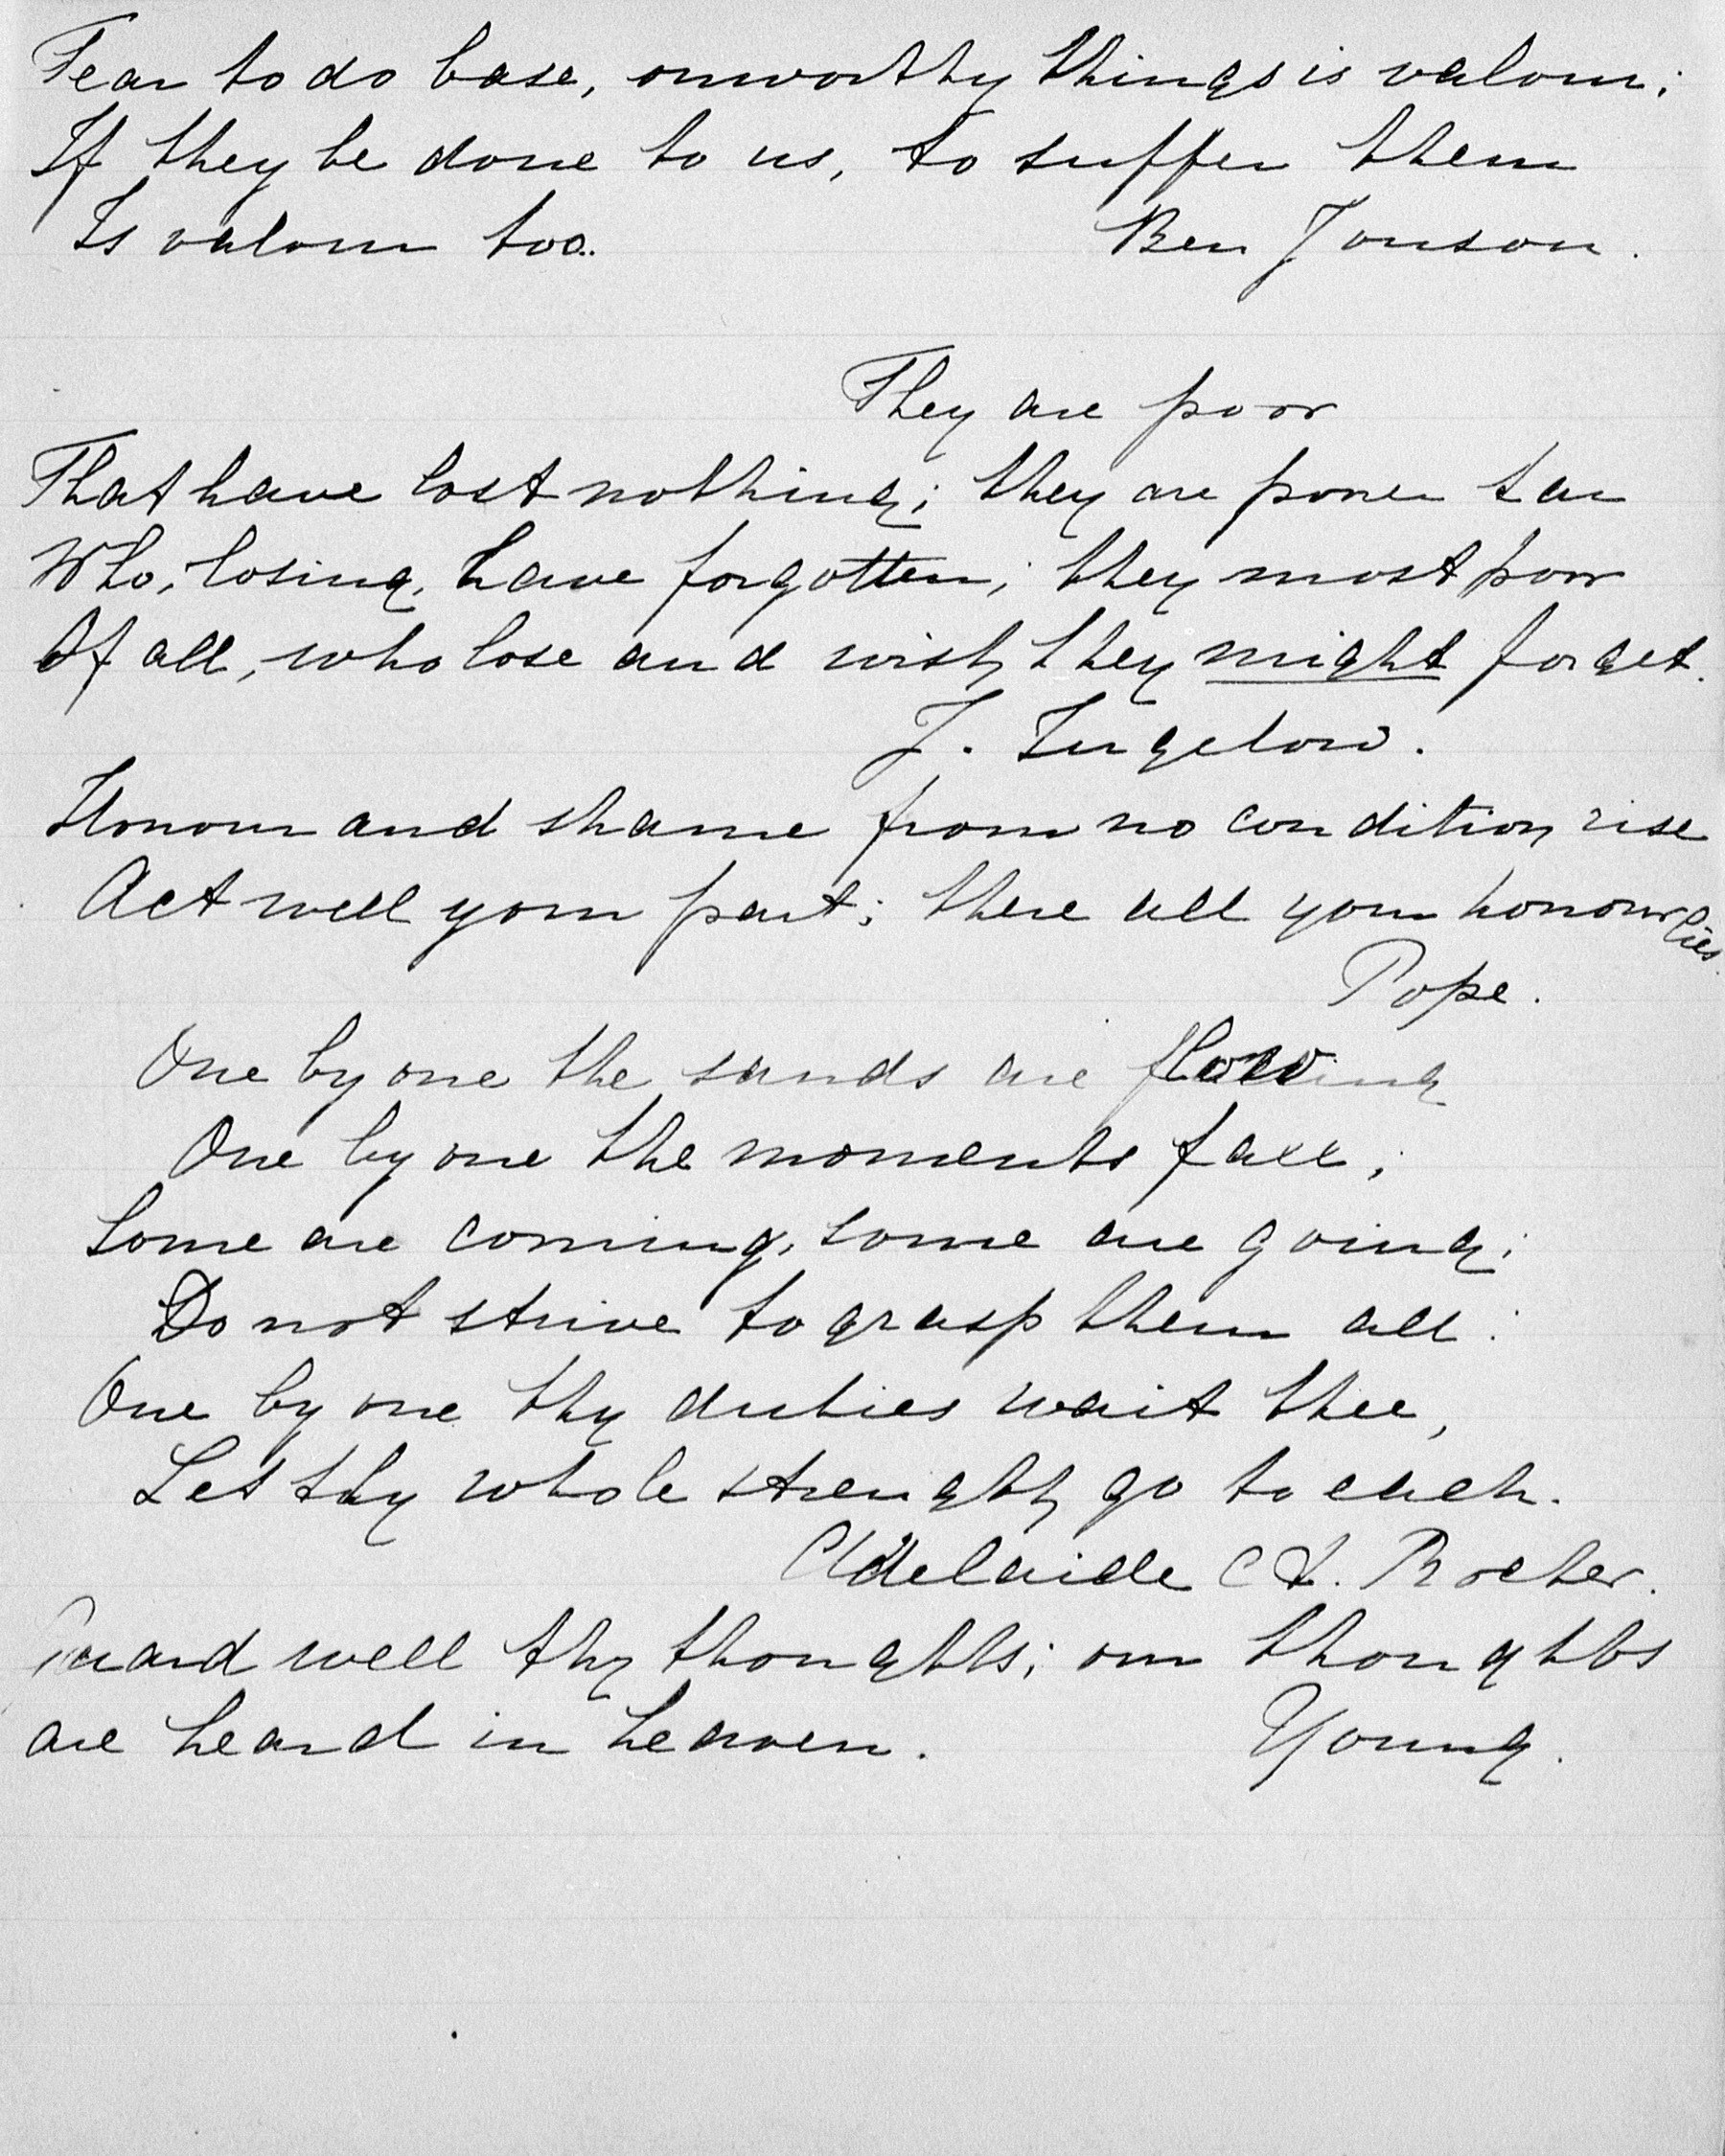 Fear to do base, onworthy things is valour;
If they be done to us, to suffer them
Is valour too.
Ben Jonson.
They are poor
That have lost nothing; they are poorer far
Who, losing, have forgotten; they most poor
Of all, who lose and wish they might forget.
J. Ingelow.
Honour and shame from no condition rise
Act well your part; there all your honour lies.
Pope.
One by one the sands are flowing
One by one the moments fall;
Some are coming, some are going;
Do not strive to grasp them all:
One by one thy duties wait thee,
Let thy whole strength go to each.
Adelaide A. Procter.
Guard well thy thoughts; our thoughts
are heard in heaven.
Young.